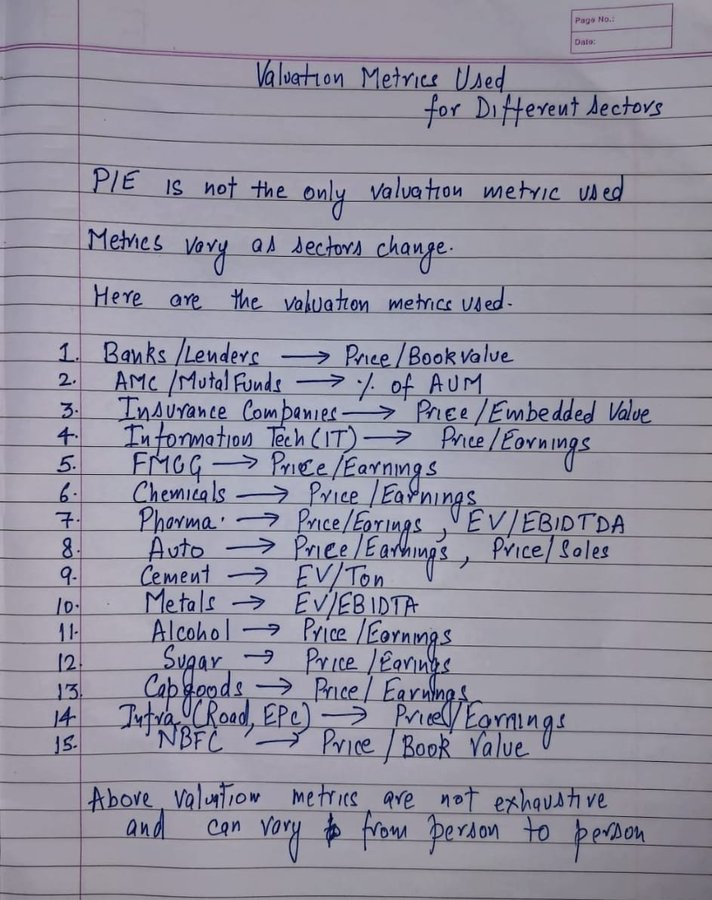 Page No.:
Date:
Valuation Metrics Used
for Different Sectors
P/E is not the only valuation metric used
Metrics vary as sectors change.
Here are the valuation metrics used.
1. Banks/Lenders → Price/Book value
2. AMC/Mutal Funds → % of AUM
3. Insurance Companies → Price/Embedded Value
4. Information Tech (IT) → Price/Earnings
5. FMCG → Price/Earnings
6. Chemicals → Price/Earnings
7. Pharma. → Price/Earings, EV/EBIDTDA
8. Auto → Price/Earnings, Price/Sales
9. Cement → EV/Ton
10. Metals → EV/EBIDTA
11. Alcohol → Price/Earnings
12. Sugar → Price/Earings
13. Cap goods → Price/Earnings
14 Infra (Road, EPC) → Price/Earnings
15. NBFC → Price/Book Value
Above valuation metrics are not exhaustive
and can vary from person to person